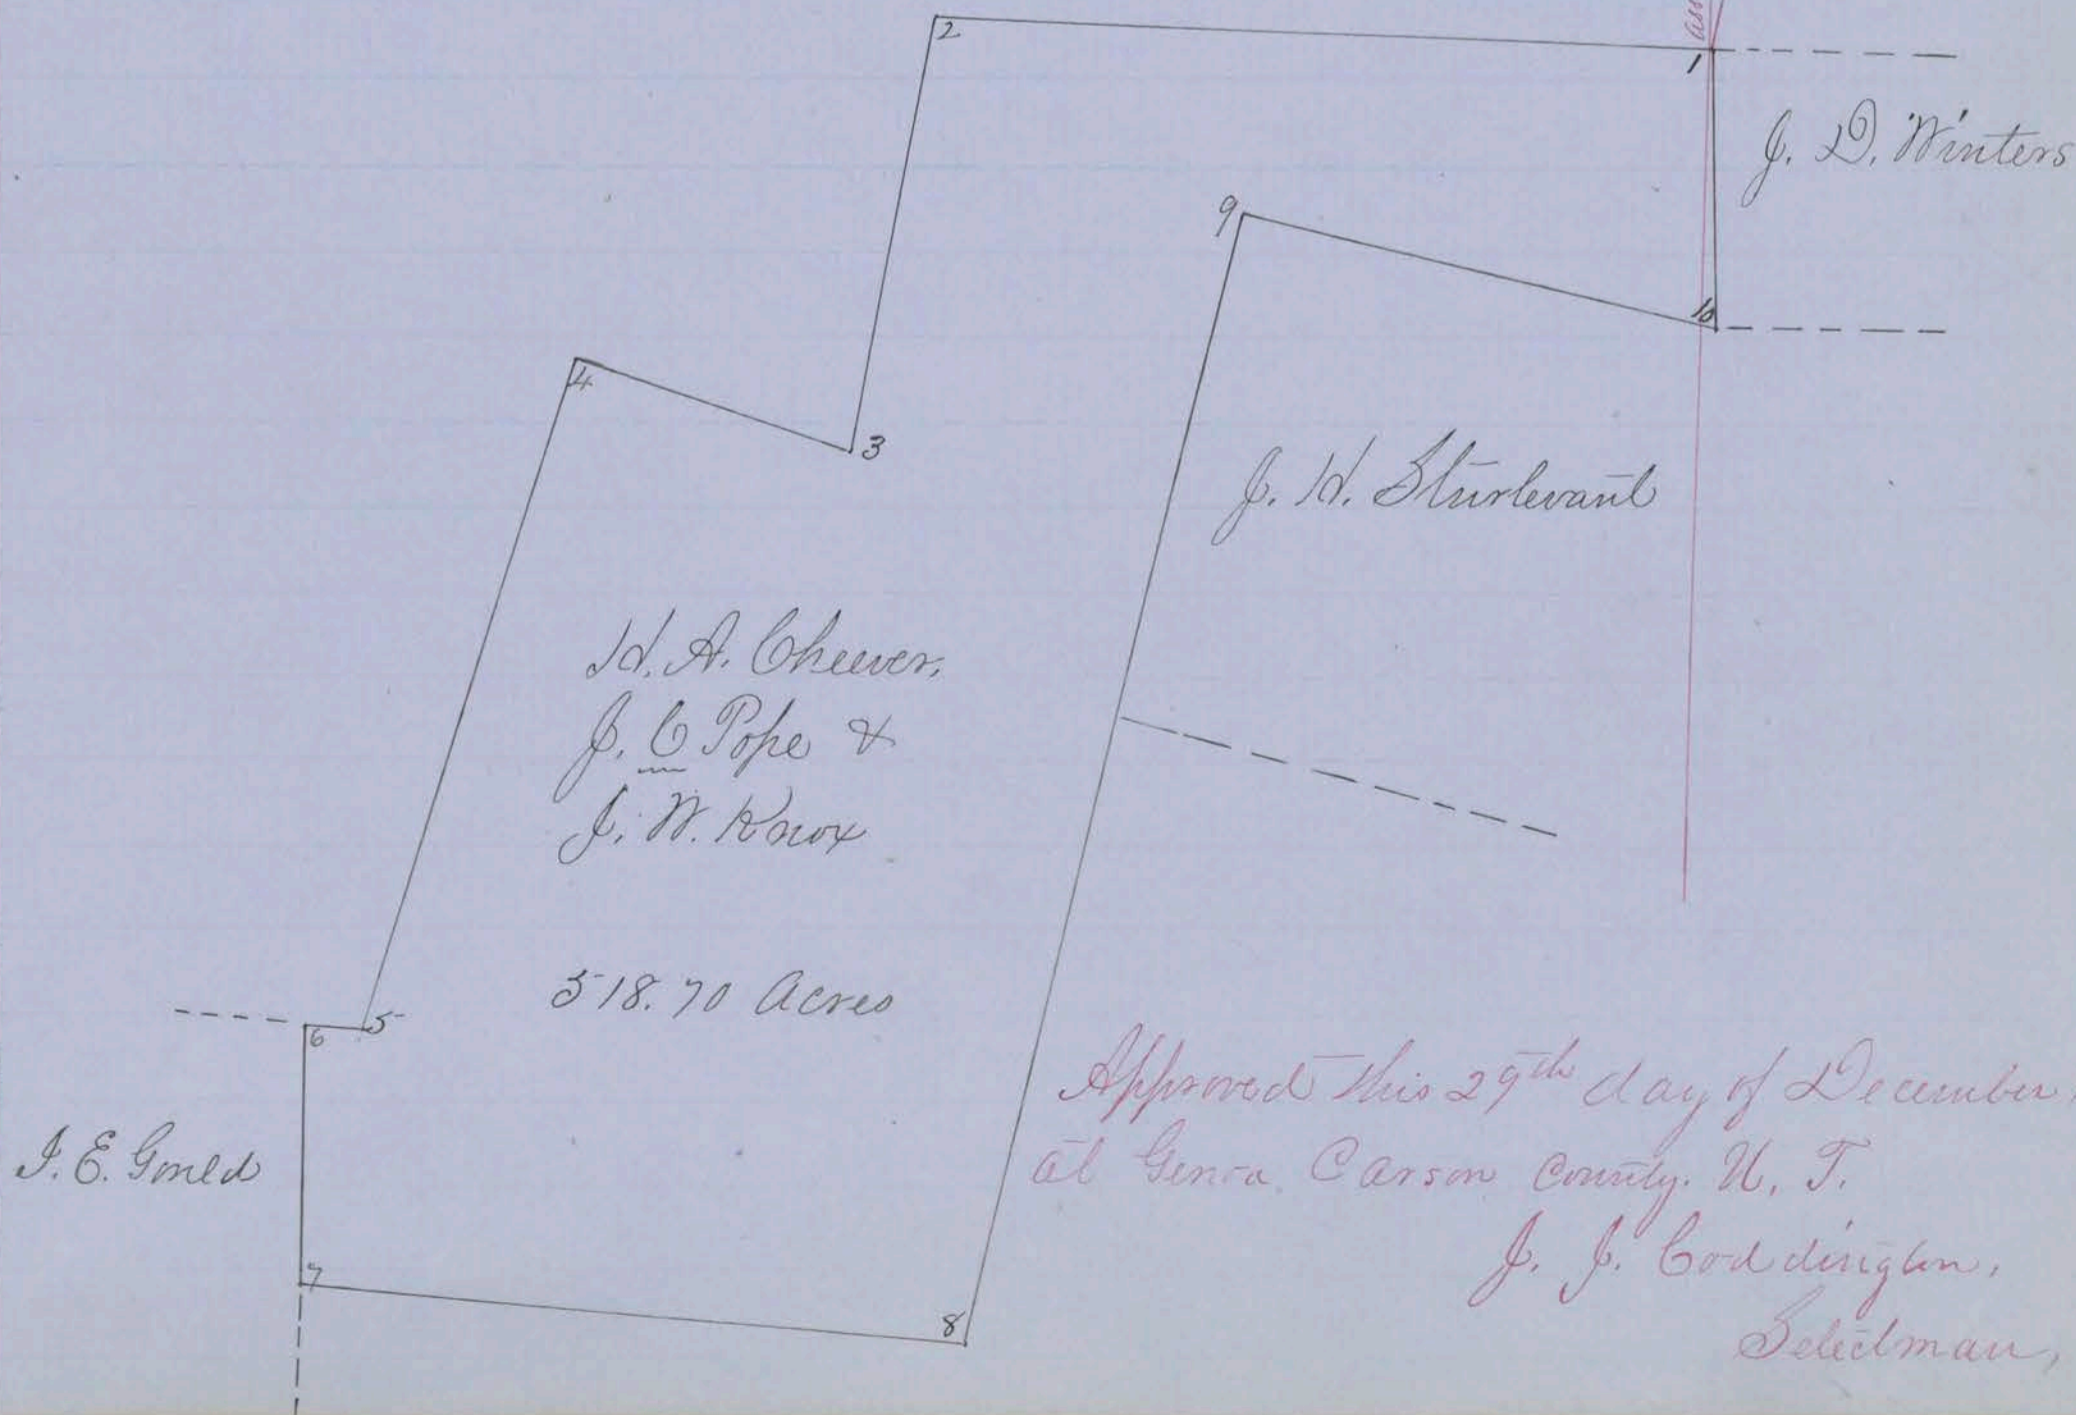 2
1
J. D. Winters
9
10
4
3
J. H. Sturtevant
H. A. Cheever,
J. C Pope &
J. W. Knox
518.70 Acres
5
6
I. E. Gould
7
8
Approved this 29th day of December,
at Genoa Carson County. U. T.
J. J. Coddington,
Selectman,